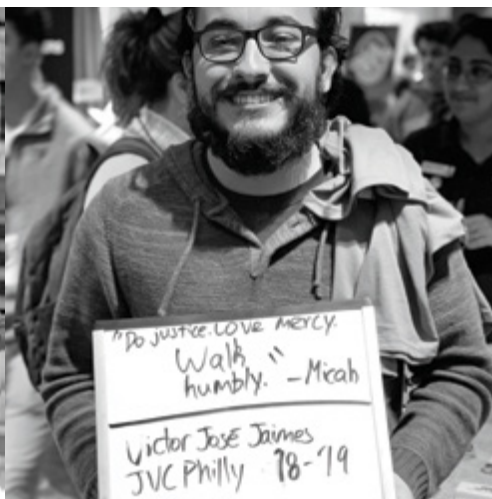 "Do justice. Love mercy.
Walk
humbly." - Micah
Victor José Jaimes
JVC Philly 18-19